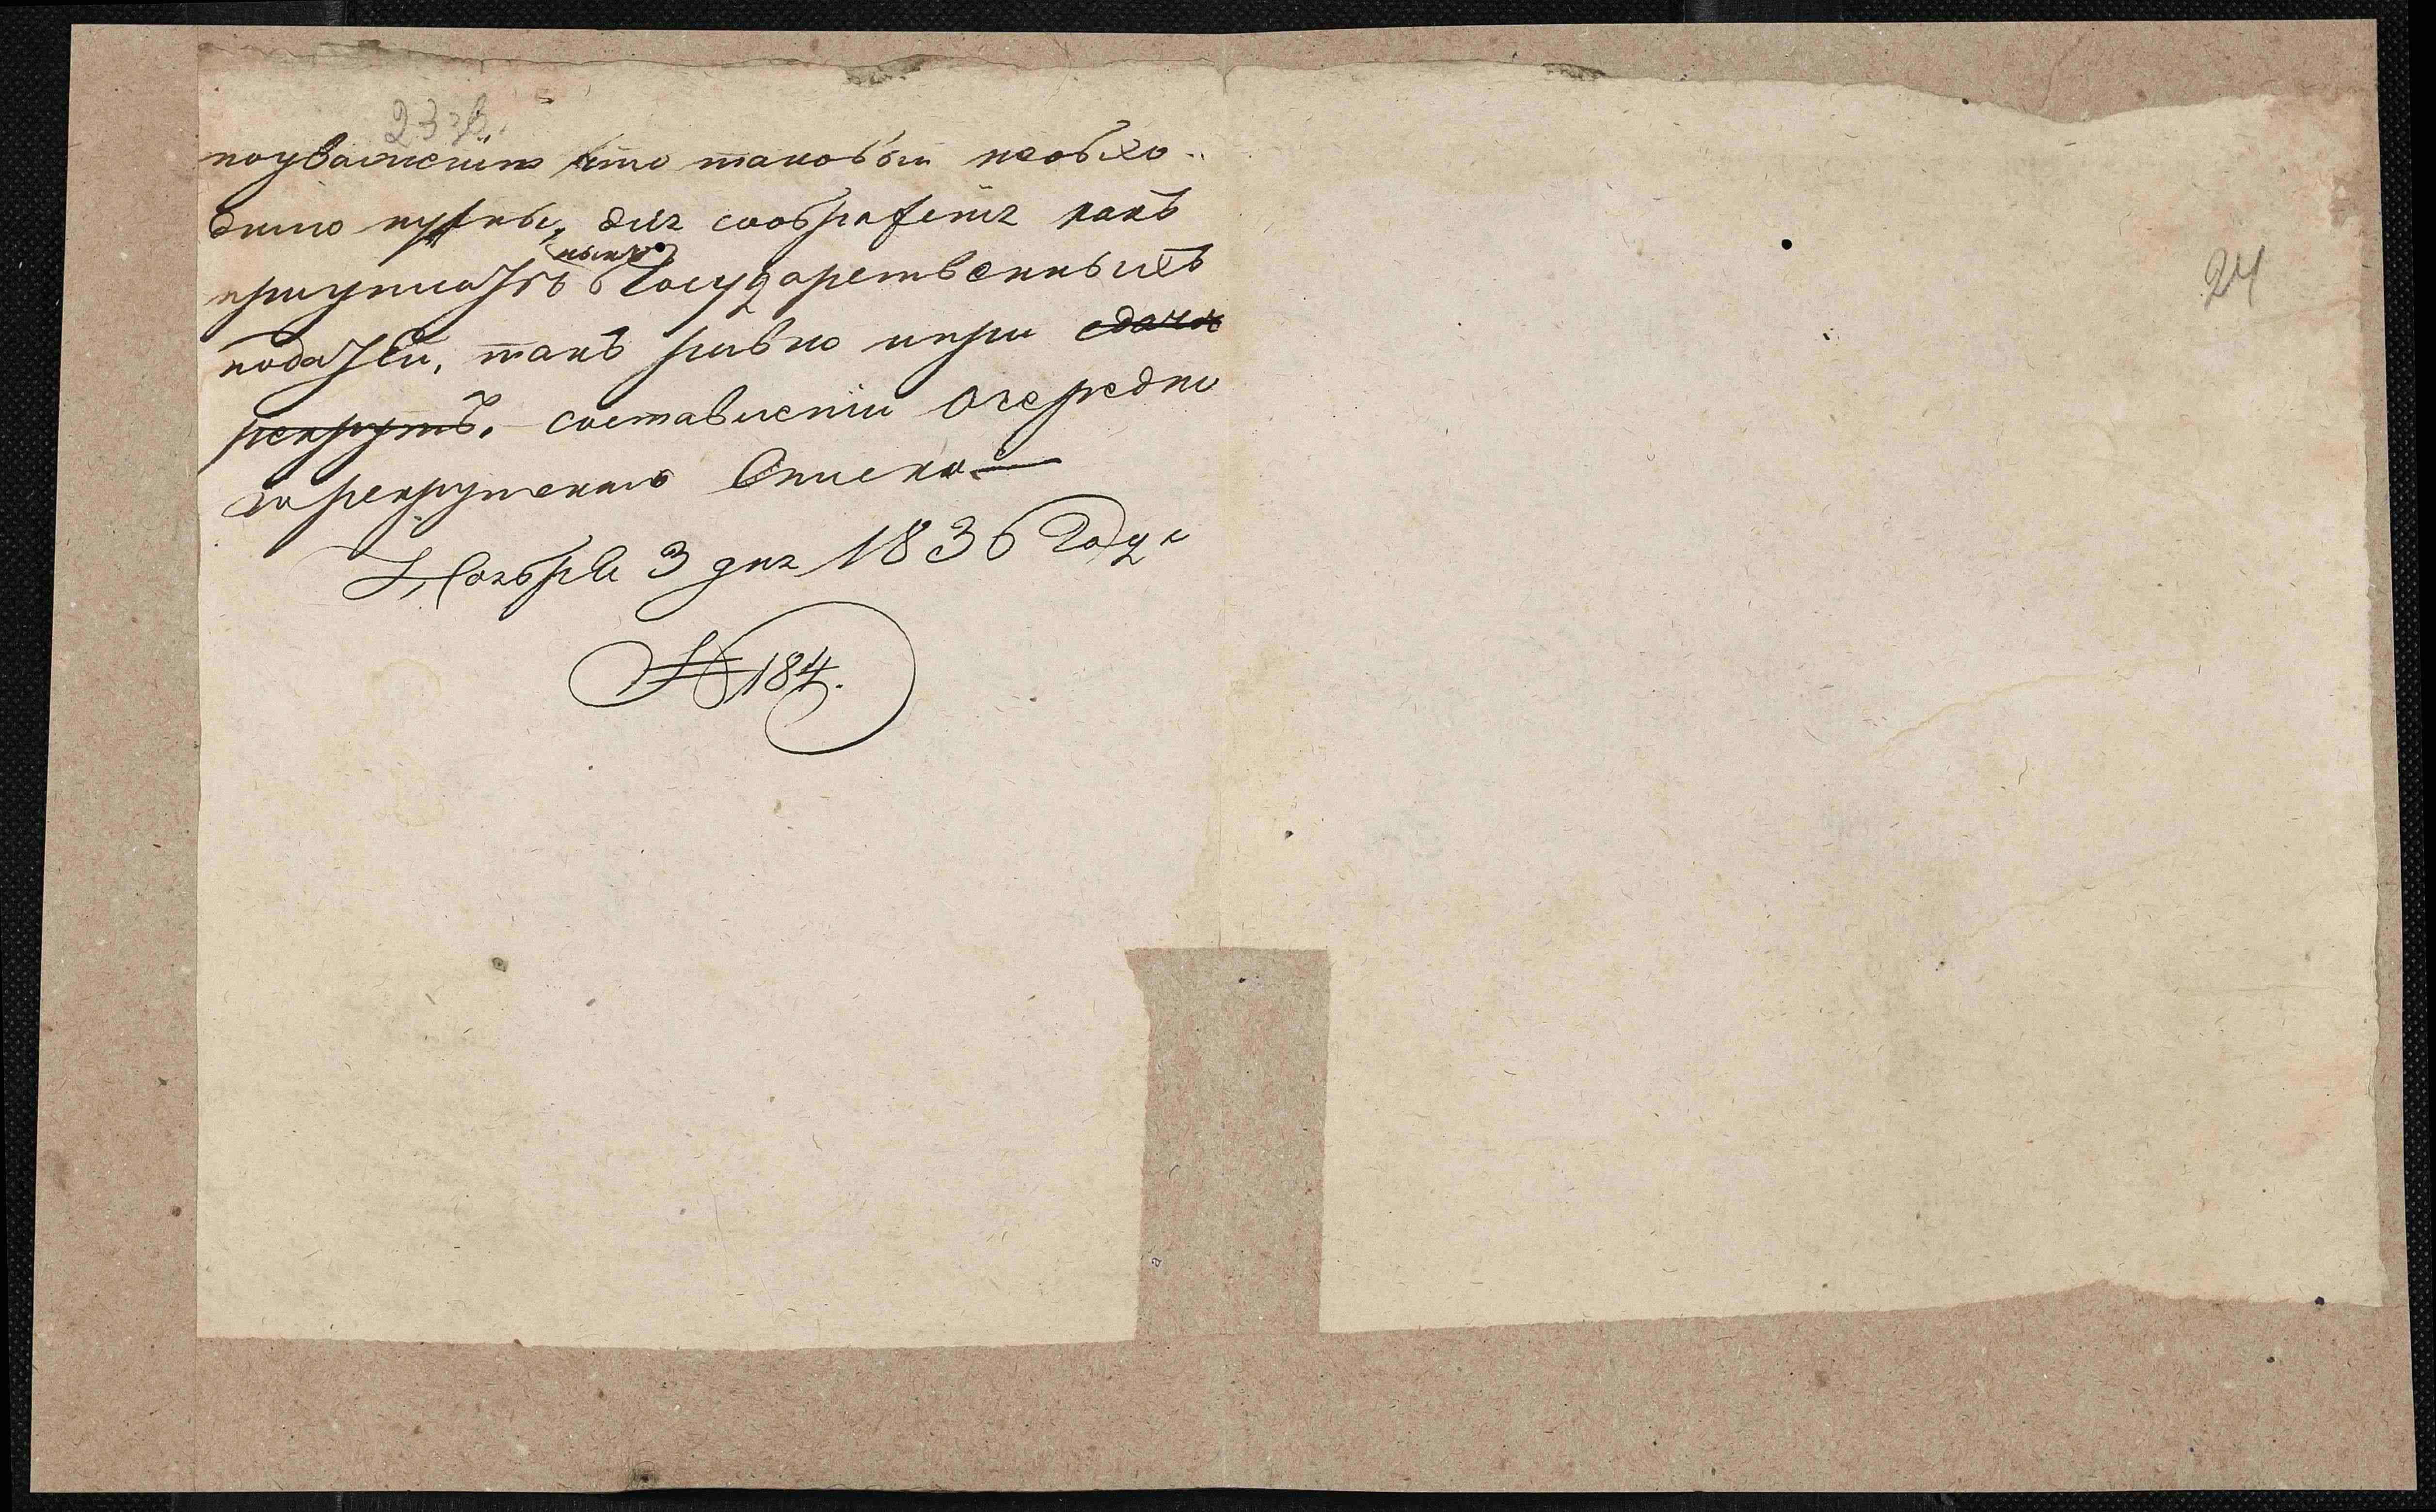 23 об.
поуваженiю что таковыи необхо-
димо нужны, для соображенiя какъ
приуплатѣ Государственныхъ
податей, такъ равно ипри сдачи
рекрутъ, составленiи очередно
го рекрутскаго Списка
Ноября 3 дня 1836 Года
№ 184.
24